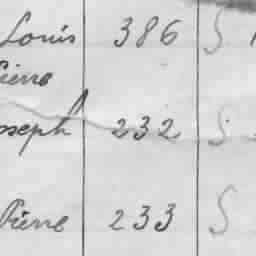 Louis 386 S
Pierre
Joseph 232 S
Pierre 233 S